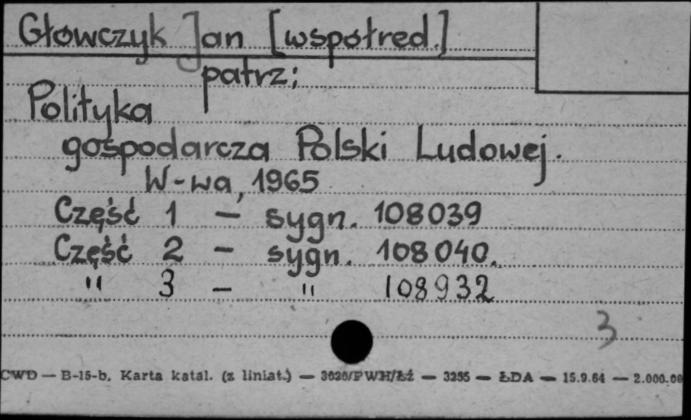 Główczyk Jan [współred.]
patrz;
Polityka
gospodarcza Polski Ludowej.
W-wa, 1965
Część 1 — sygn. 108039
Część 2 — sygn. 108040.
" 3 — " 108932
3
CWD — B-15-b. Karta katal. (z liniat.) — 3020/PWH/Łż — 3255 — ŁDA — 15.9.64 — 2.000.00